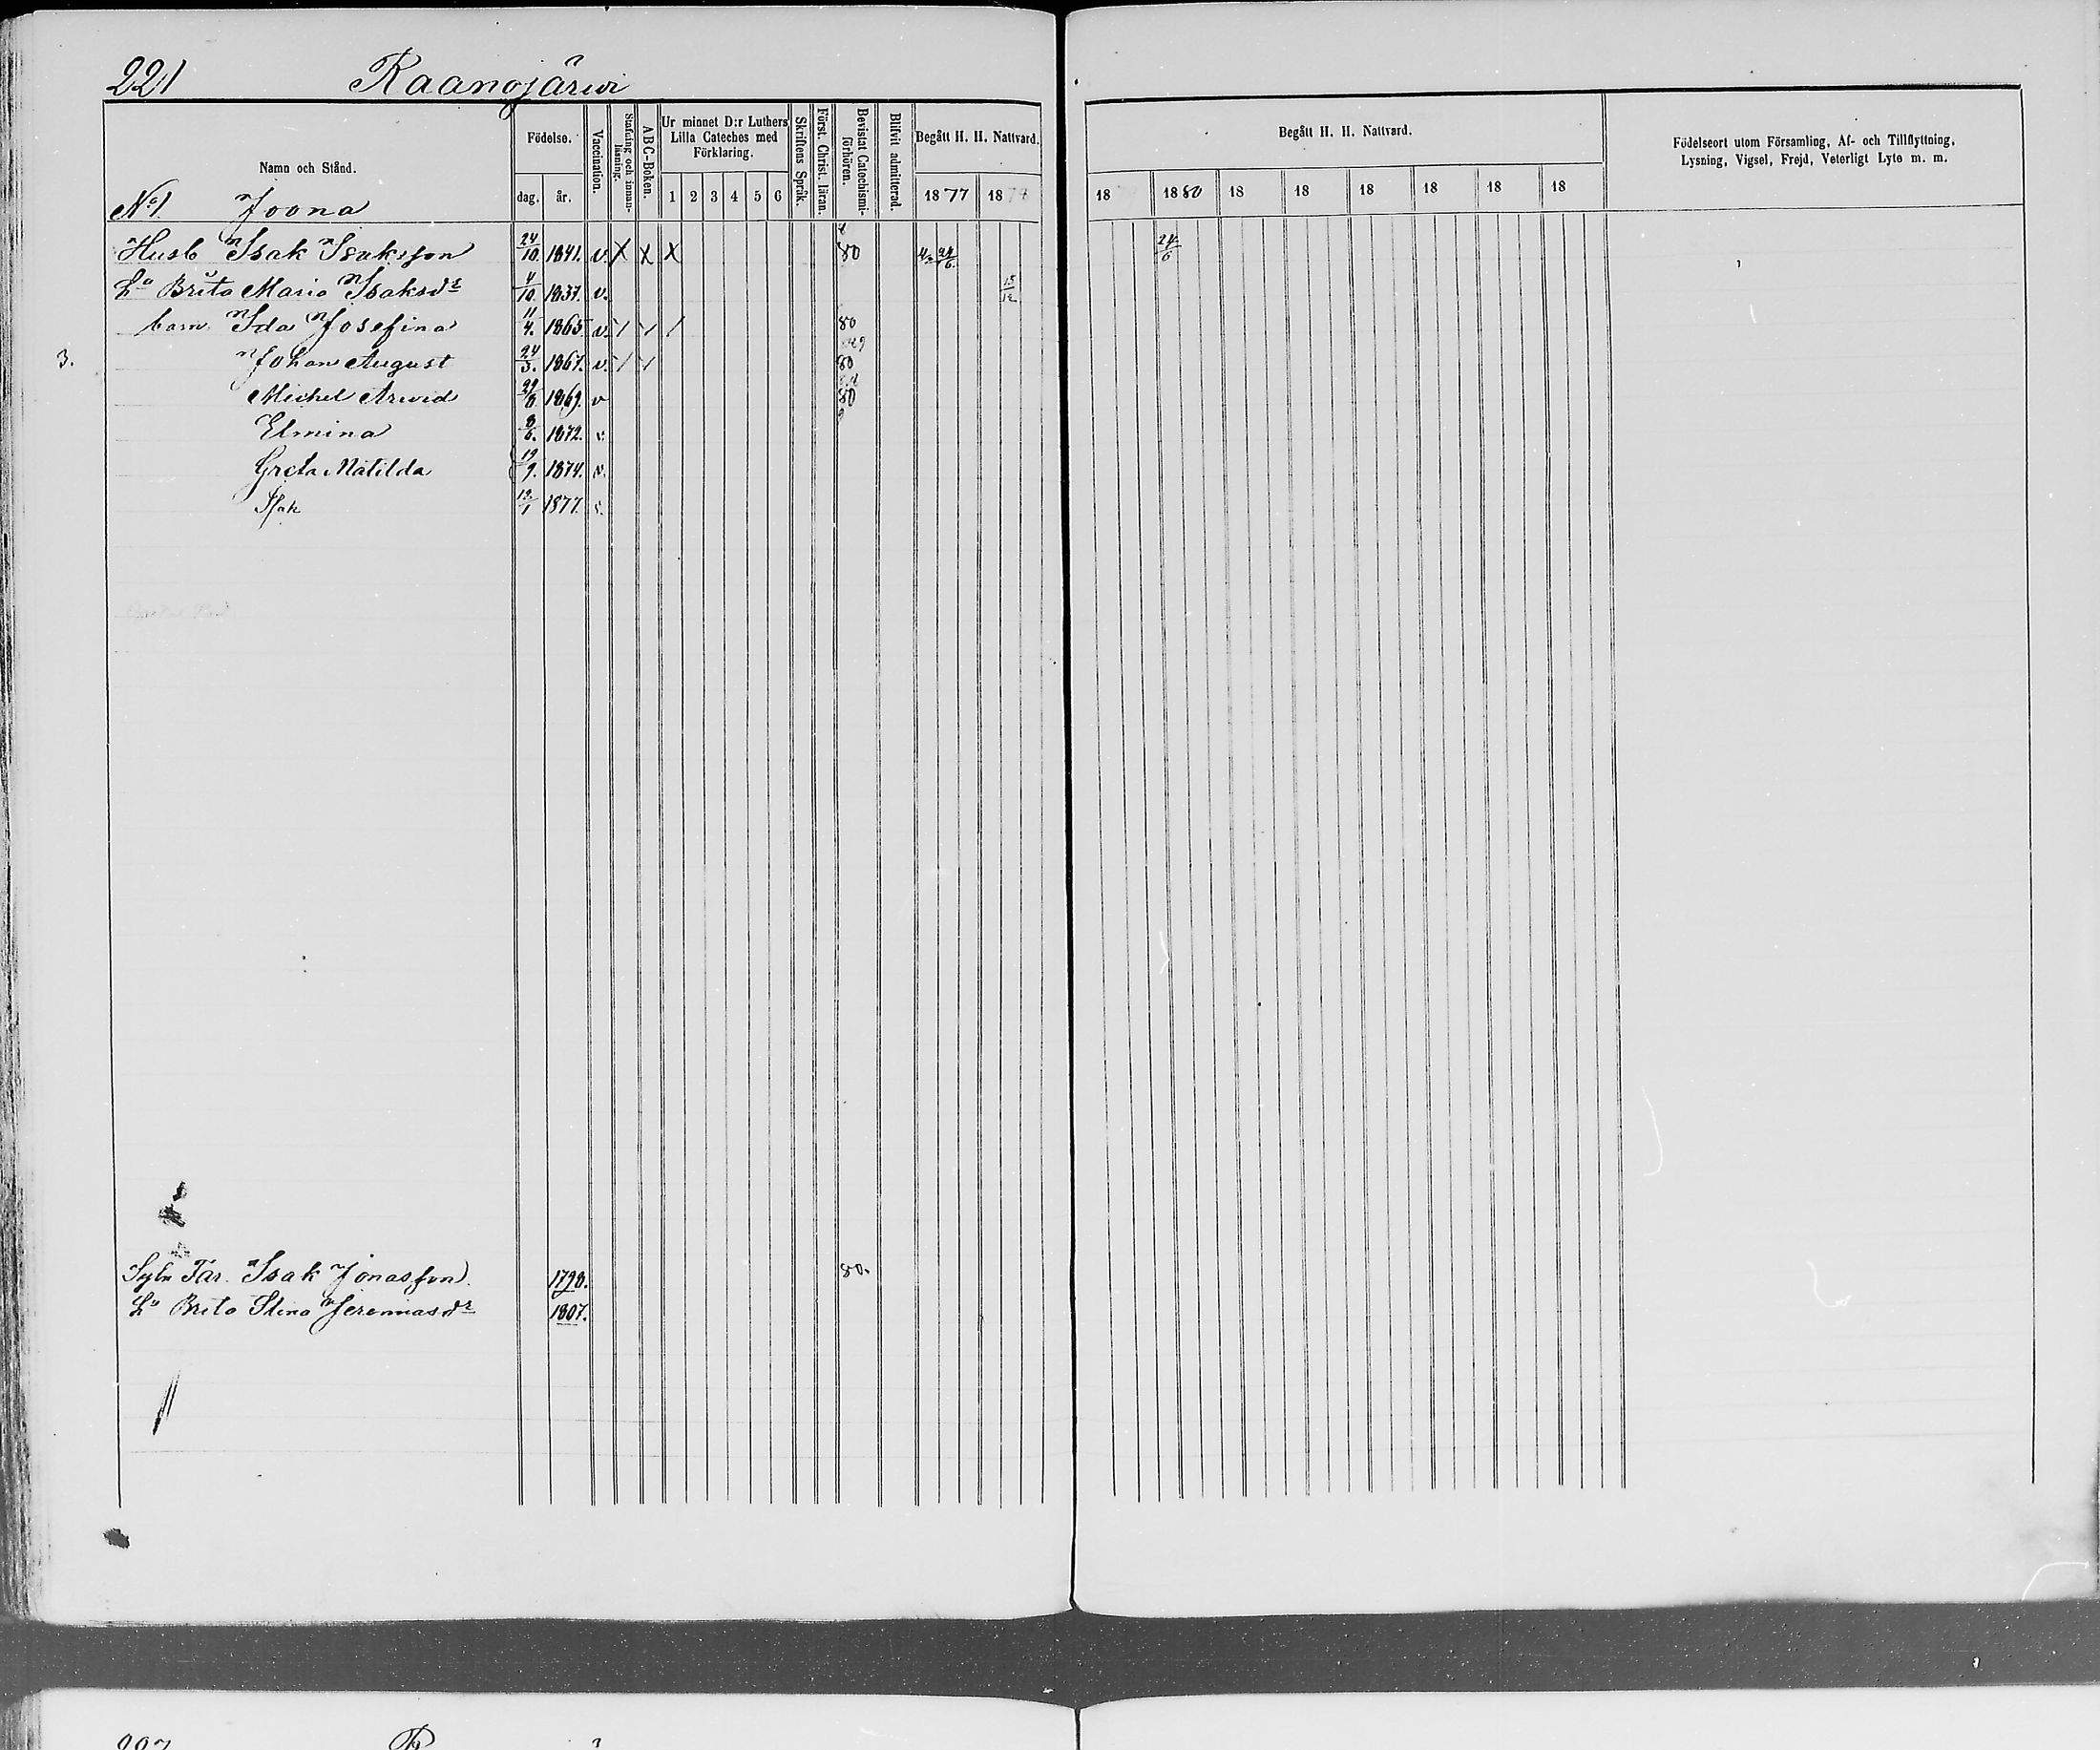 221 Raanojärwi
Namn och Stånd. Födelse. dag. år. Vaccination. Stafning och innanläsning. ABC-Boken. Ur minnet D:r Luthers Lilla Cateches med Förklaring. 1 2 3 4 5 6 Skriftens Språk. Först. Christ. läran. Bevistat Catechismiförhören. Blifvit admitterad. Begått H. H. Nattvard. 1877 18
Begått H. H. Nattvard. 18 1880 18 18 18 18 18 18
Födelseort utom Församling, Af- och Tillflyttning,
Lysning, Vigsel, Frejd, Veterligt Lyte m. m.
No 1. Joona
Husb Isak Isaksson 24/10. 1841. v. X X X 80 24/6. 24/6
Ho Brita Maria Isaksdr 4/10. 1837. v. 15/12
barn Ida Josefina 11/4. 1865 v. 80
3. Johan August 24/3. 1867. v. 80
Michel Arwid 29/8. 1869. v 80
Elmina 8/6. 1872. v.
Greta Matilda 19/9. 1874. v.
Isak 1877. v.
Sytn Far. Isak Jonasson. 1798. 80.
Ho Brita Stina Jeremiasdr 1807.